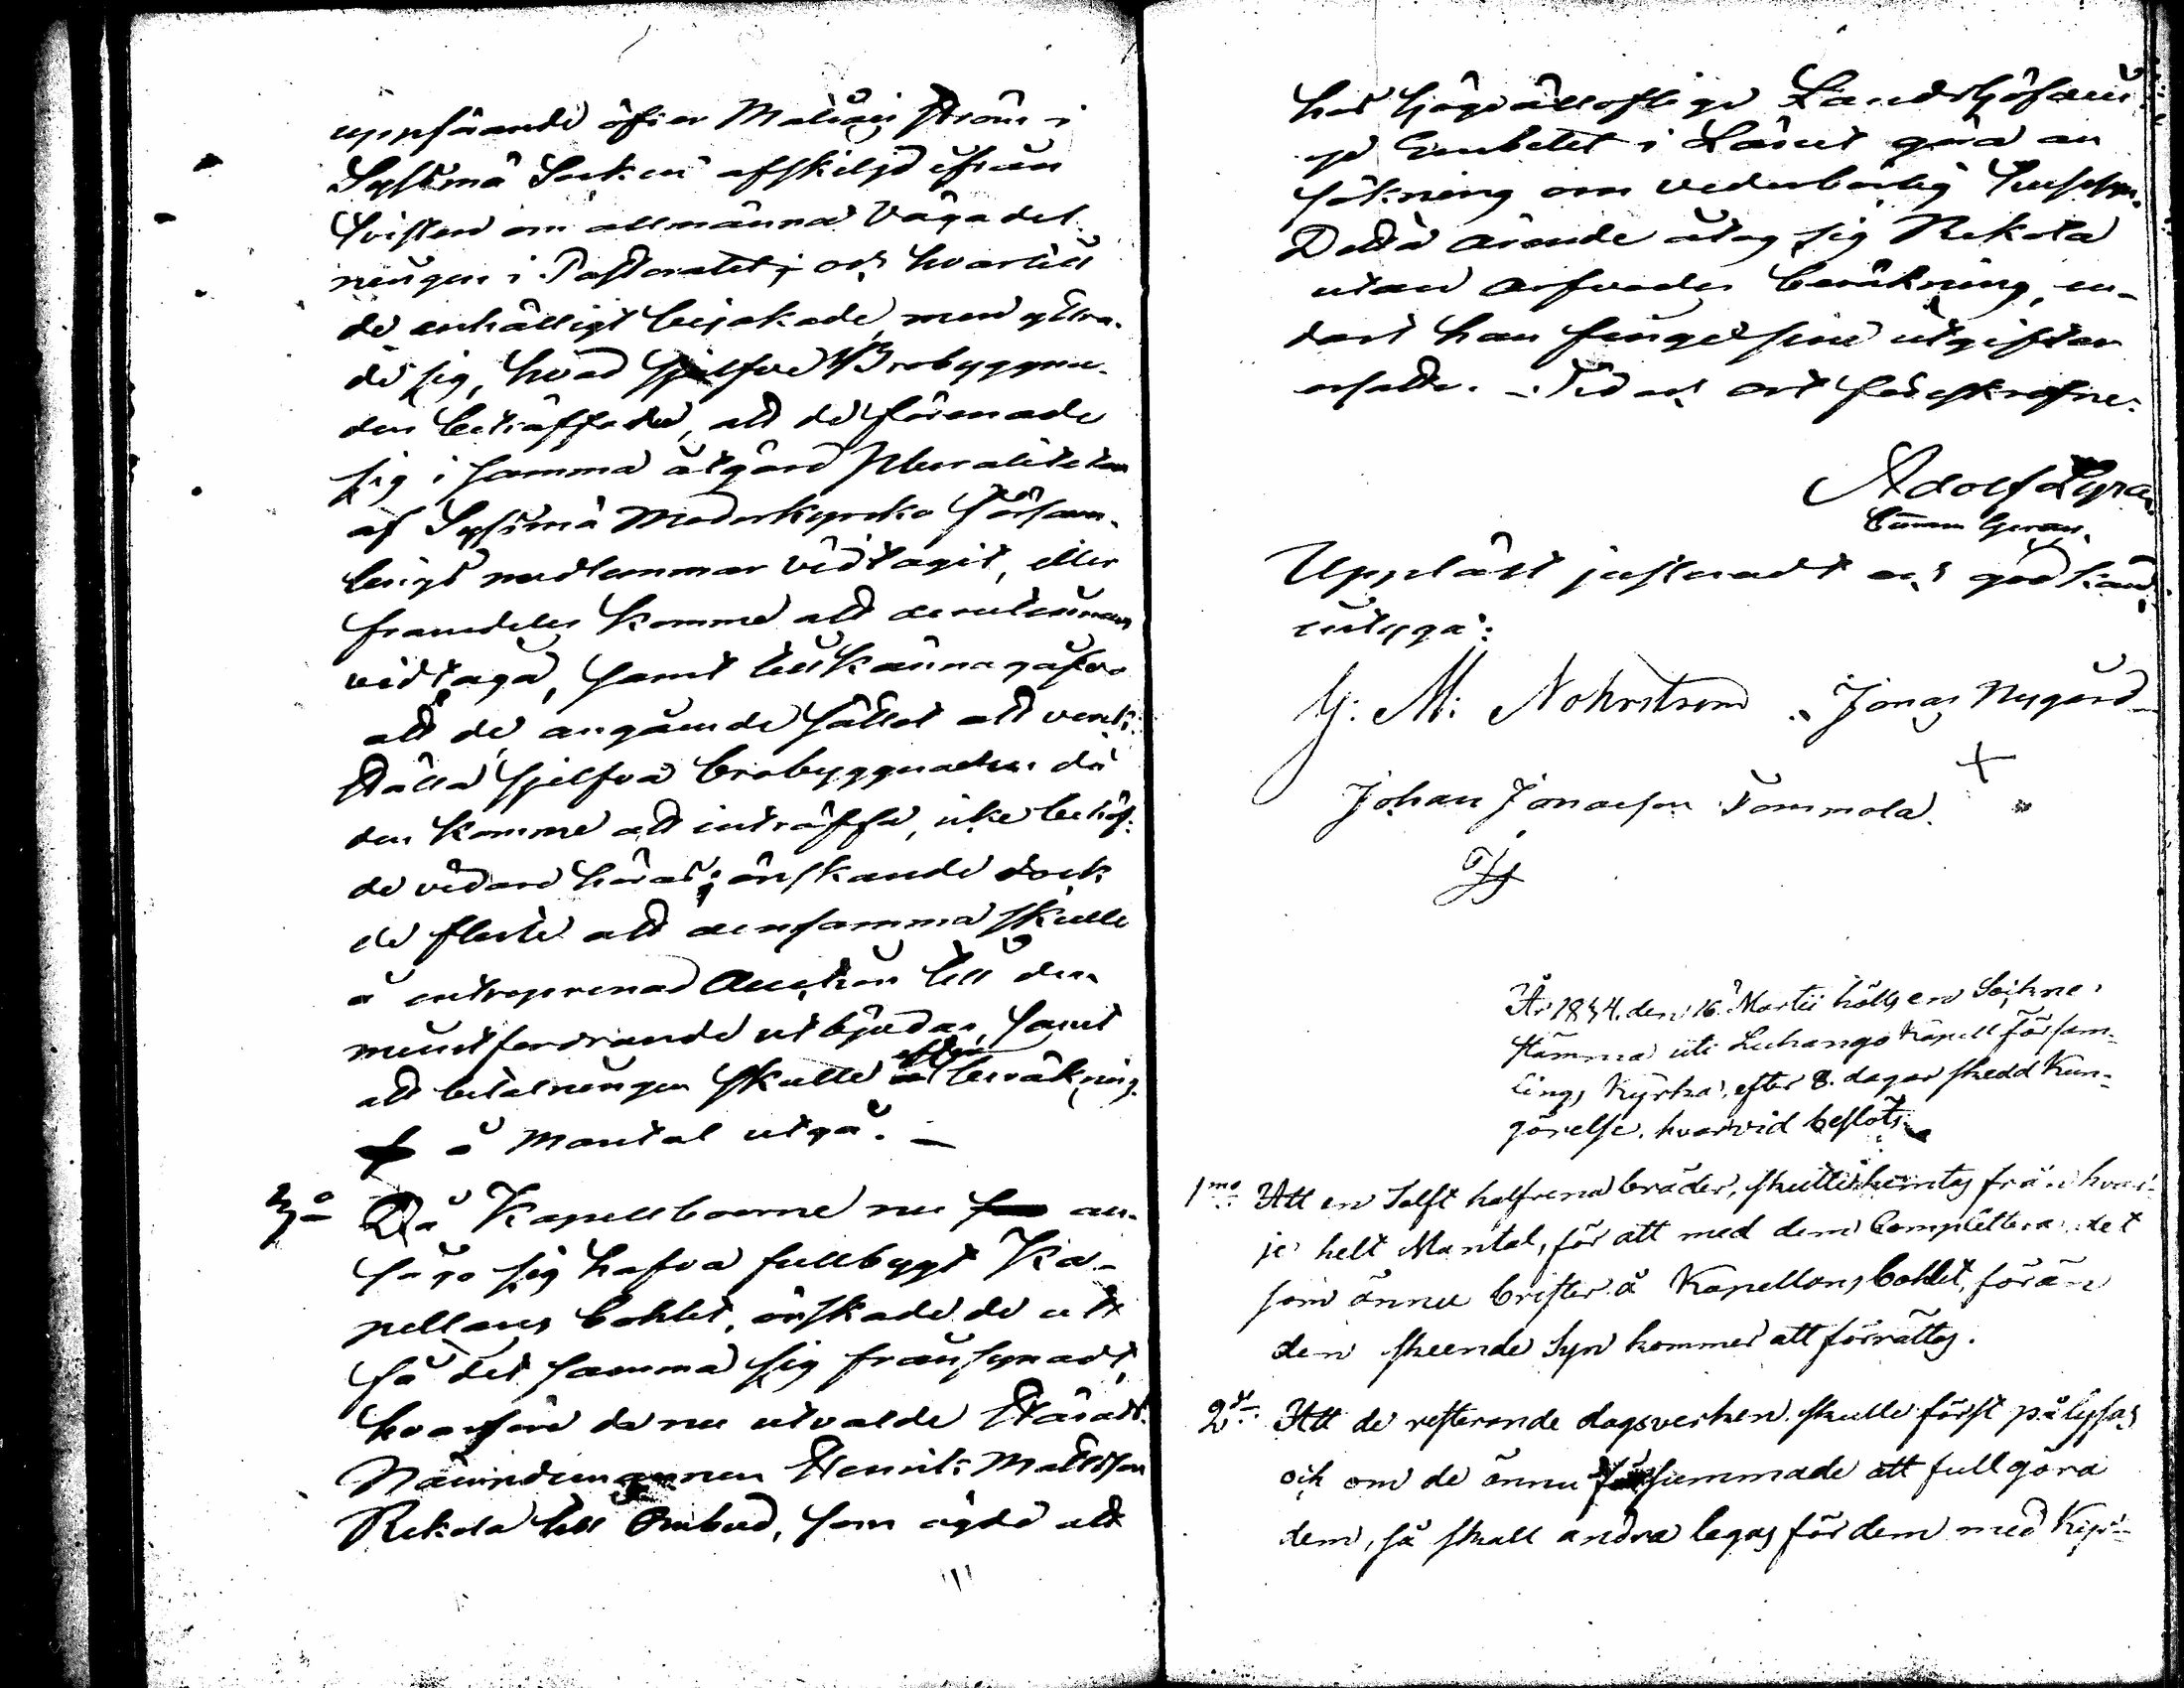 uppförande öfver Matinsi ström i
Sysmä Socken afskiljd ifrån
tvisten om allmänna Vägadel
ningen i Pastoratet; och hvartill
de enhälligt bejakade, men yttra-
de sig, hvad sjelfva Brobyggna-
den beträffade, att de förenade
sig i samma åtgärd Pluraliteten
af Sysmä Moderkyrko Försam-
lings medlemmar vidtagit, eller
framdeles komme att derutinnan
vidtaga, samt tillkännagåfvo
att de, angående sättet att verk-
ställa sjelfva brobyggnaden då
den komme att inträffa, icke behöf-
de vidare höras; önskande dock
de fleste att densamma skulle
å entreprenad Auction till den
minstfordrande utbjudas, samt
att betalningen skulle efter beräkning
å Mantal utgå. —
3o Då Kapellboerne nu an-
sågo sig hafva fullbygt Ka-
pellans bohlet, önskade de att
få det samma sig fransynadt,
hvarföre de nu utvalde Härads
Nämndemannen Henrik Mattsson
Rekola till Ombud, som ägde att
hos Högvälloflige Landshöfdin-
ge Embetet i Länet göra an
sökning om vederbörlig
Detta ärende åtog sig Rekola
utan arfvodes beräkning, en-
dast han finge sine utgifter
ersatte. — Tid och ort föreskrefne.
Adolf
Uppläst justeradt och godkänd
intyga:
G: M: Nohrström Jonas Nygård
+
Johan Jonasson Tommola

År 1844. den 16. Martii hölls en Sockne-
stämma uti Luhango Kapell församl-
lings Kyrka, efter 8. dagar skedd Kun-
görelse. hvarvid beslöts:
1mo Att en Tolft halfrena bräder, skulle hemtas från hvar-
je helt Mantal, för att med dem Complettera det
som ännu brister å Kapellans bohlet, förän
den skeende Syn kommer att förrättas.
2do Att de resterande dagsverken skulle först pålysas
och om de ännu försummade att fullgöra
dem, så skall andra legas för dem med Kyr-